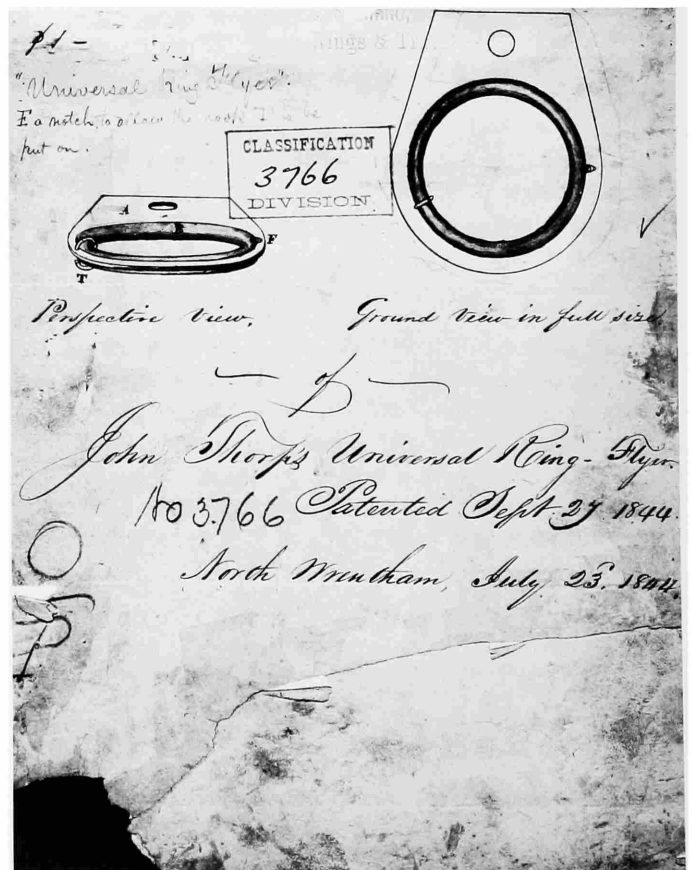 Rings & Tr
"Universal ring flyer".
F a notch, to allow the hook T to be
put on.
CLASSIFICATION
3766
DIVISION.
A
F
T
Perspective view,
Ground view in full size.
— of —
John Thorp's Universal Ring-Flyer.
No 3.766 Patented Sept 27 1844.
North Wrentham, July 23d. 1844.